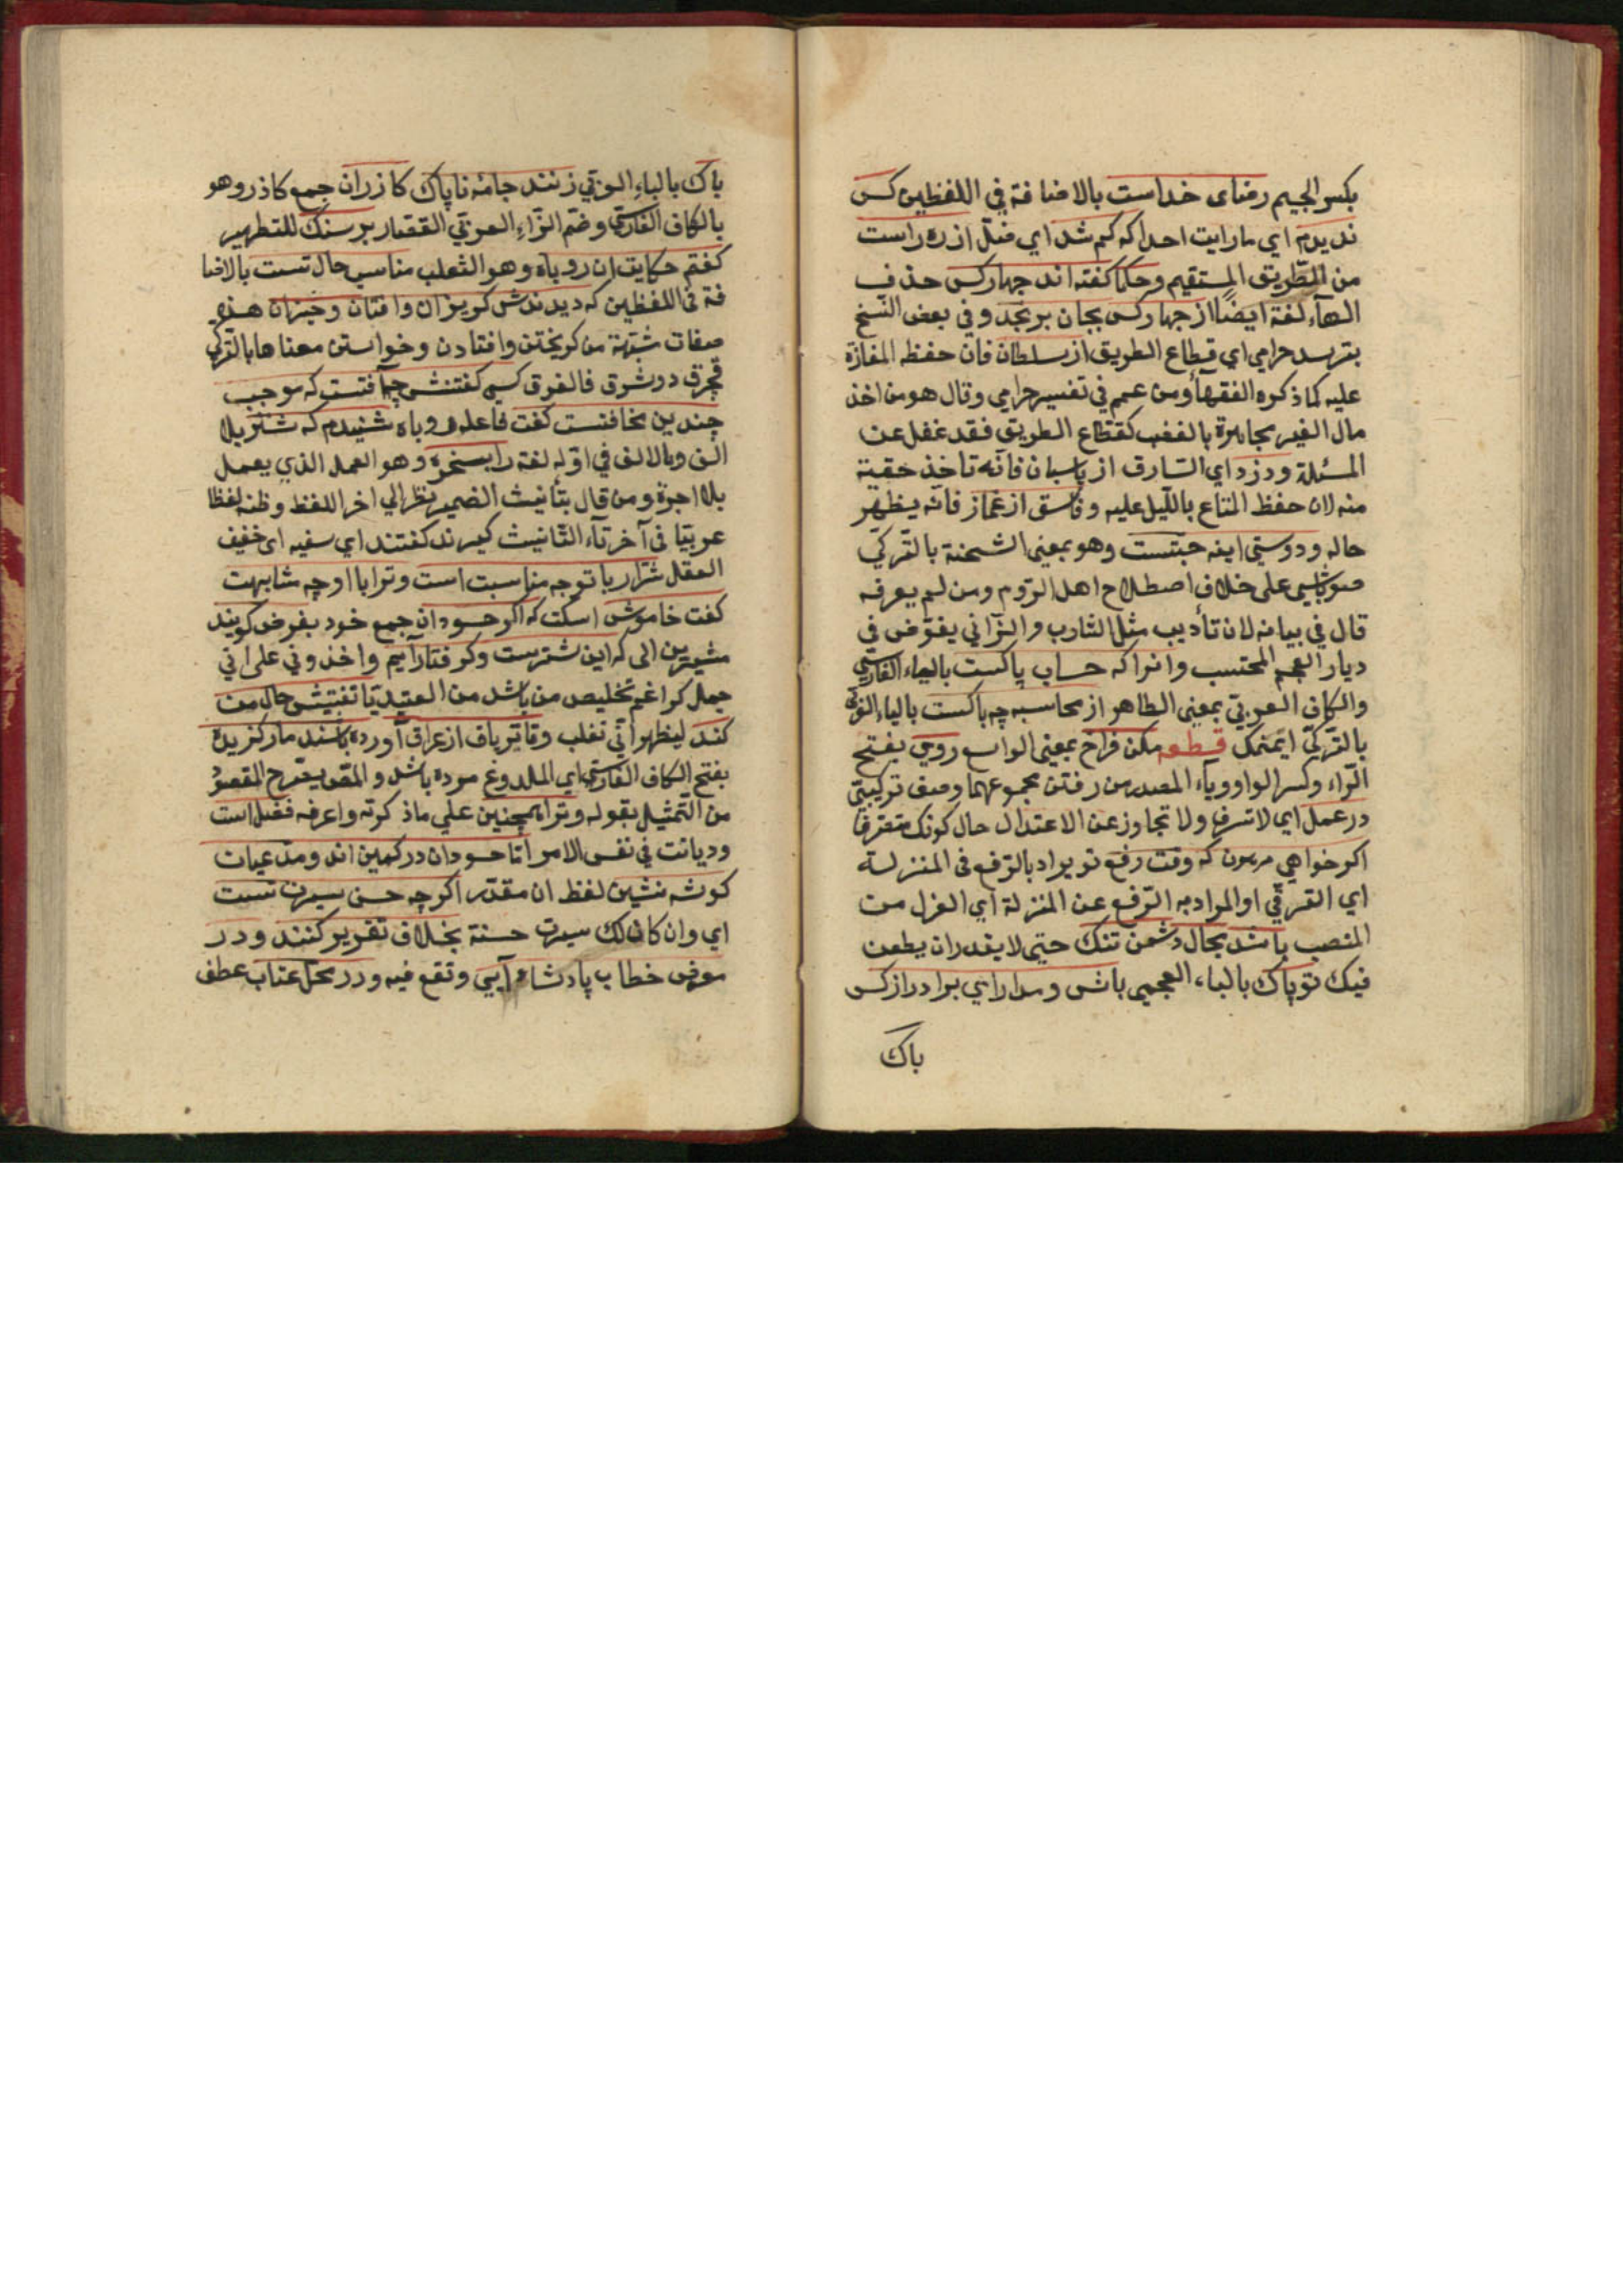 بكسر الجيم رضاى خداست بالاضافة في اللفظين كس
نديدم اي ما رايت احدا كه كم شد اي ضل از ره راست
من الطريق المستقيم وحكما كفته اند جهاركس حذف
الهاء لغة ايضا از جهاركس بجان برنجد وفي بعض النسخ
بترسد حرامي اي قطاع الطريق از سلطان فان حفظ المفازة
عليه كما ذكره الفقهاء ومن عمم في تفسير حرامي وقال هو من اخذ
مال الغير مجاهرة بالغضب كقطاع الطريق فقد غفل عن
المسئلة ودزد اي السارق از پاسبان فانه تاخذ خفية
منه لان حفظ المتاع بالليل عليه وفاسق از غماز فانه يظهر
حاله و محتسب وهو بمعنى الشحنة بالتركي
صوباشي على خلاف اصطلاح اهل الروم ومن لم يعرفه
قال في بيانه لان تأديب مثل الشارب والزاني يفوض في
ديار العجم المحتسب وانرا كه حساب پاكست بالباء الفارسي
والكاف العربي بمعنى الطاهر از محاسبه چه باكست بالباء العربي
بالتركي قطعه مكن فراخ بمعنى الواسع روى بفتح
الراء وكسر الواو وياء المصدر من رفتن مجموعهما وصف تركيبي
در عمل اي لا تسرف ولا تجاوز عن الاعتدال حال كونك متصرفا
اكر خواهي كه وقت رفع تو يراد بالرفع في المنزلة
اي الترقي او المراد به الرفع عن المنزلة اي العزل من
المنصب باشد مجال دشمن تنك حتى لا يقدر ان يطعن
فيك تو پاك بالباء العجمي باش ومدار اي برادر از كس
باك
باك بالباء العربي زنند جامۀ ناپاك كازران جمع كاذر وهو
بالكاف الفارسي وضم الزاء العربي القصار بر سنك للتطهير
كفتم حكايت ان روباه وهو الثعلب مناسب حال تست بالاضا
فة في اللفظين كه ديدندش كريزان وافتان وخيزان هذه
صفات مشبهة من كريختن وافتادن وخواستن معناها بالتركي
كسي كفتش چه آفتست كه موجب
چندين مخافتست كفت فاعله روباه شنيدم كه شتر بلا
الف وبالالف في اوله لغة را بسخره وهو العمل الذي يعمل
بلا اجرة ومن قال بتأنيث الضمير نظر الي اخر اللفظ وظنه لفظا
عربيا في آخر تاء التانيث كيرند كفتند اي سفيه اى خفيف
العقل شتر را با تو چه مناسبت است وترا با او چه مشابهت
كفت خاموش اسكت كه اكر حسودان جمع خود بغرض كويند
الى كه اين شترست وكرفتار آيم واخذوني على اني
جمل كرا غم تخليص من باشد من القيد تا تفتيش حال من
كند ليظهر أني ثعلب وتا ترياق از عراق آورده باشند مار كزيده
بفتح الكاف الفارسي اي الملدوغ مرده باشد و يصرح المقصود
من التمثيل بقوله وترا همچنين علي ما ذكرته واعرفه فضل است
وديانت في نفس الامر اما حسودان در كمين اند ومدعيان
كوشه نشين لفظ ان مقدر اكرچه حسن سيرت تست
اي وان كان لك سيرت حسنة بخلاف تقرير كنند ودر
معرض خطاب پادشاه آيي وتقع فيه ودر محل عتاب عطف